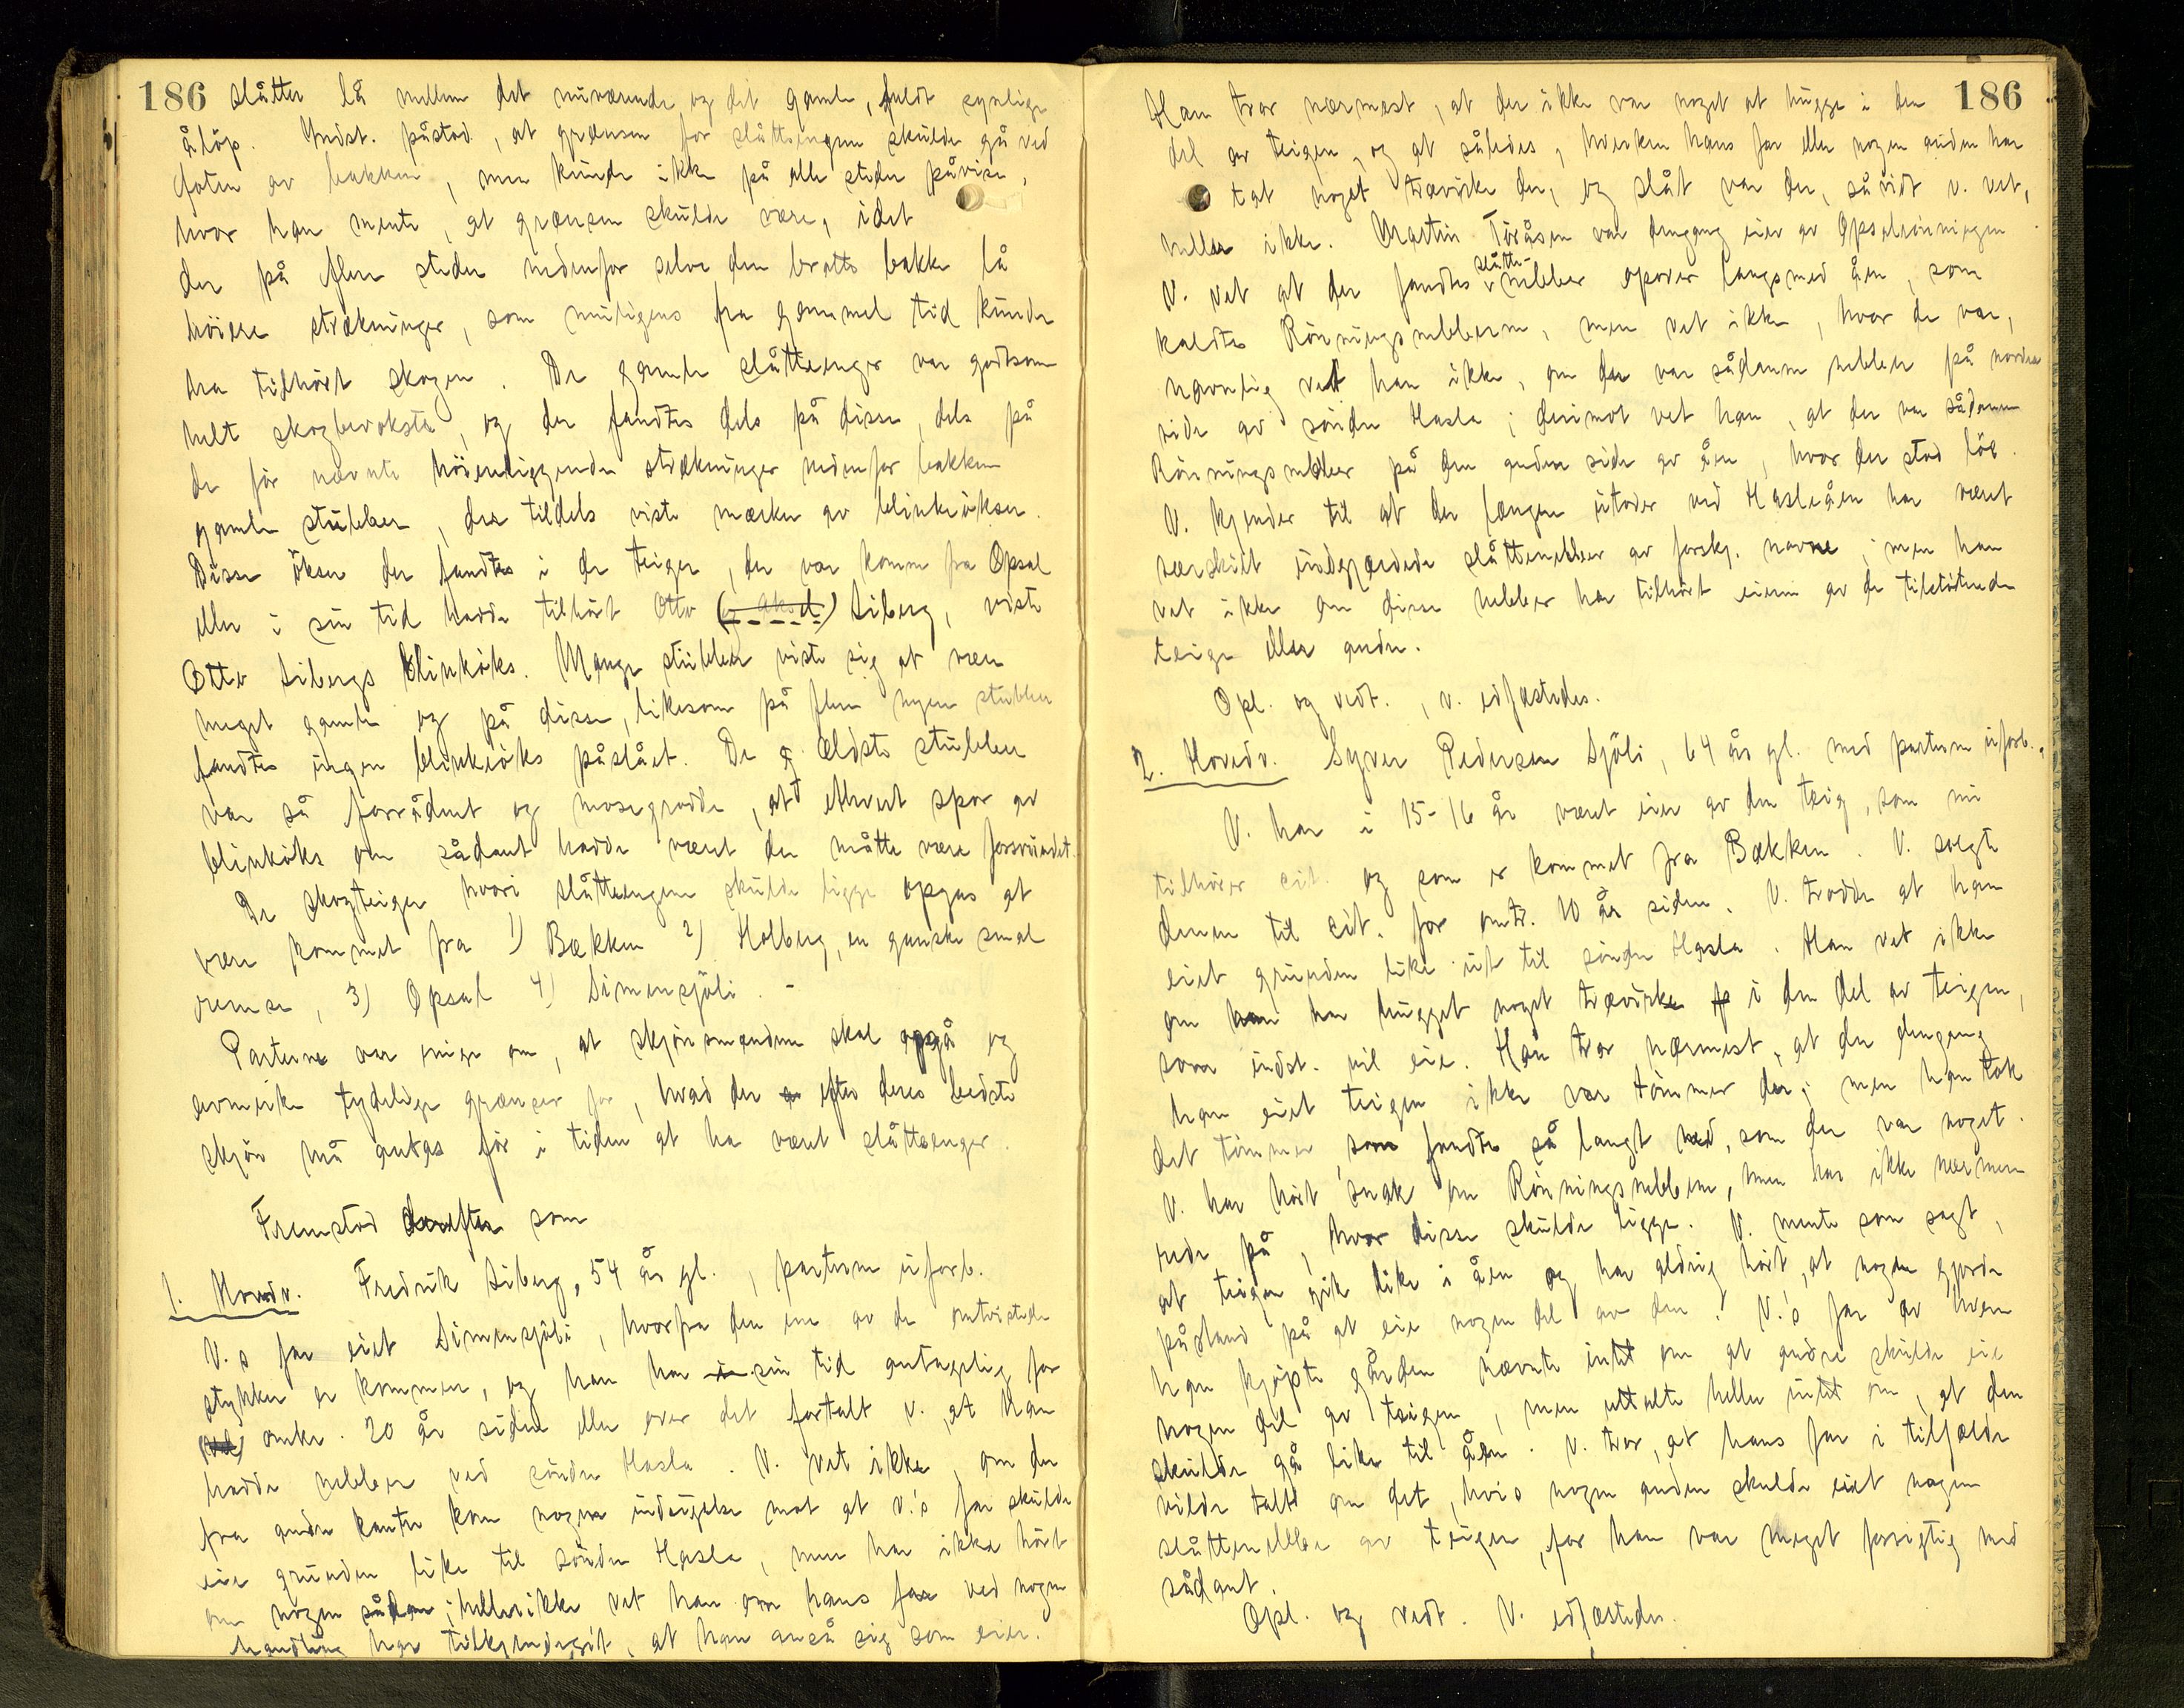 186 slåtter lå mellem det nuværende og det gamle, fuldt synlige
åløp. Indst. påstod, at grænsen for slåttengene skulde gå ved
foten av bakken, men kunde ikke på alle steder påvise,
hvor han mente, at grænsen skulde være, idet
der på flere steder nedenfor selve den bratte bakke lå
høiere strækninger, som muligens fra gammel tid kunde
ha tilhört skogen. De gamle slåttenger var godtsom
helt skogbevokste, og der fandtes dels på disse, dels på
de før nævnte höiereliggende strækninger nedenfor bakken
gamle stubber, der tildels viste mærker av blinkøksen.
Disse ökser der fandtes i de teiger, der var komne fra Opsal
eller i sin tid hadde tilhört Otto (og Aksel) Siberg, viste
Otto Sibergs blinköks. Mange stubber viste sig at være
meget gamle og på disse, likesom på flere nyere stubber
fandtes ingen blinköks påslået. De ældste stubber
var så forrådnet og mosegrodde, at ethvert spor av
blinköks om sådant hadde været der måtte være forsvundet.
De skogteiger hvori slåttengene skulde ligge opgas at
være kommet fra 1) Bækken 2) Holberg, en ganske smal
remse, 3) Opsal 4) Simensjöli. -
Parterne var enige om, at skjönsmændene skal opgå og
avmerke tydelige grænser for, hvad der efter deres bedste
skjön må antas før i tiden at ha været slåttenger.
Fremstod derefter som
1. Hovedv. Fredrik Siberg, 54 år gl., parterne uforb.
V.s far eiet Simensjöli, hvorfra den ene av de omtvistede
stykker er kommen, og han har i sin tid antagelig for
omkr. 20 år siden eller over det fortalt v., at han
hadde nebber ved söndre Hasla. V. vet ikke, om der
fra andre kanter kom nogen indsigelse mot at V.'s far skulde
eie grunden like til söndre Hasla, men har ikke hört
om nogen sådan; heller ikke vet han om hans far ved nogen
handling har tilkjendegit, at han anså sig som eier.
Han tror nærmest, at der ikke var noget at hugge i den 186
del av teigen, og at således, hverken hans far eller nogen anden har
tat noget trævirke der, og slåt var der, såvidt v. vet,
heller ikke. Martin Toråsen var dengang eier av Opsalrønningen
V. vet at der fandtes slåtte- nebber opover langsmed åen, som
kaldtes Rönningsnebberne, men vet ikke, hvor de var,
navnlig vet han ikke, om der var sådanne nebber på nordre
side av söndre Hasla; derimot vet han, at der var sådanne
Rönningsnebber på den anden side av åen, hvor der stod löe.
V. kjender til at der længere utover ved Hasleåen har været
særskilt indgjærdede slåttenebber av forskj. navne; men han
vet ikke om disse nebber har tilhört eierne av de tilstötende
teiger eller andre.
Opl. og vedt., v. edfæstedes.
2. Hovedv. Syver Pedersen Sjöli, 64 år gl. med parterne uforb.
V. har i 15-16 år været eier av den teig, som nu
tilhörer cit. og som er kommet fra Bækken. V. solgte
denne til cit. for omtr. 10 år siden. V. trodde at han
eiet grunden like ut til söndre Hasla. Han vet ikke
om han har hugget noget trævirke i den del av teigen,
som indst. vil eie. Han tror nærmest, at der dengang
han eiet teigen ikke var tömmer der; men han tok
det tömmer som fandtes så langt ned, som der var noget.
V. har hört snak om Rönningsnebbene, men har ikke nærmere
rede på, hvor disse skulde ligge. V. mente som sagt,
at teigen gik like i åen og har aldrig hört, at nogen gjorde
påstand på at eie nogen del av den. V.'s far av hvem
han kjöpte gården nævnte intet om at andre skulde eie
nogen del av teigen, men uttalte heller intet om, at den
skulde gå like til åen. V. tror, at hans far i tilfælde
vilde talt om det, hvis nogen anden skulde eiet nogen
slåttenebber av teigen, for han var meget forsigtig med
sådant.
Opl. og vedt. V. edfæstedes.